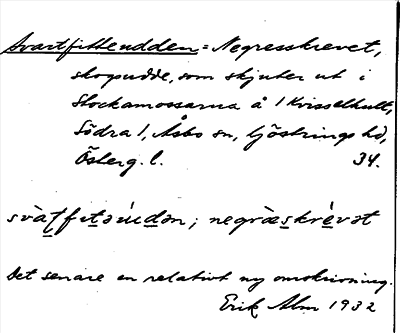 Svartfitteudden = Negresskrevet,
skogsudde, som skjuter ut i
Stockamossarna å 1 Kvisselhult,
Södra 1, Åsbo sn, Göstrings hd,
Österg. l. 34.
svàt̲fit̲əúd̲ən; negræ̀s̲krèvət
Det senare en relativt ny omskrivning.
Erik Alm 1932